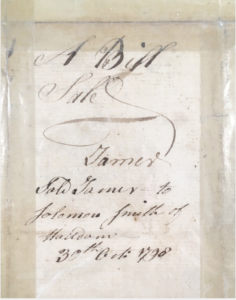 A Bill
Sale
Tamer
Sold Tamer to
Solomon Smith of
Haddam
30th Oct: 1798